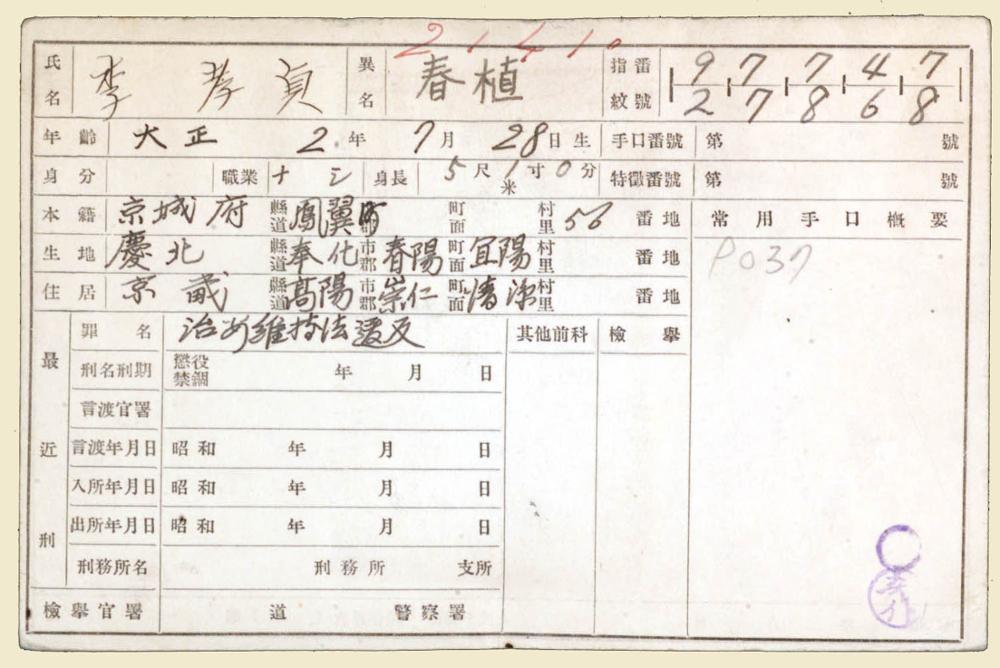 2 1 4 1 0
氏名 李孝貞 異名 春植 指紋番號 9 7 7 4 7
2 7 8 6 8
年齡 大正 2年 7月 28日生 手口番號 第 號
身分 職業 ナシ 身長 5尺1寸0分 米 特徵番號 第 號
本籍 京城府 縣道 鳳翼町 町面 村里 56 番地 常用手口槪要
生地 慶北 縣道 奉化 市郡 春陽 町面 宜陽 村里 番地 P037
住居 京畿 縣道 高陽 市郡 崇仁 町面 淸凉 村里 番地
最近刑 罪名 治安維持法違反 其他前科 檢擧
刑名刑期 懲役 禁錮 年 月 日
言渡官署
言渡年月日 昭和 年 月 日
入所年月日 昭和 年 月 日
出所年月日 昭和 年 月 日
刑務所名 刑務所 支所
檢擧官署 道 警察署